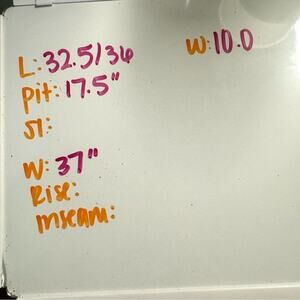 L: 32.5/36
W: 10.0
pit: 17.5"
Sl:
W: 37"
Rise:
inseam: